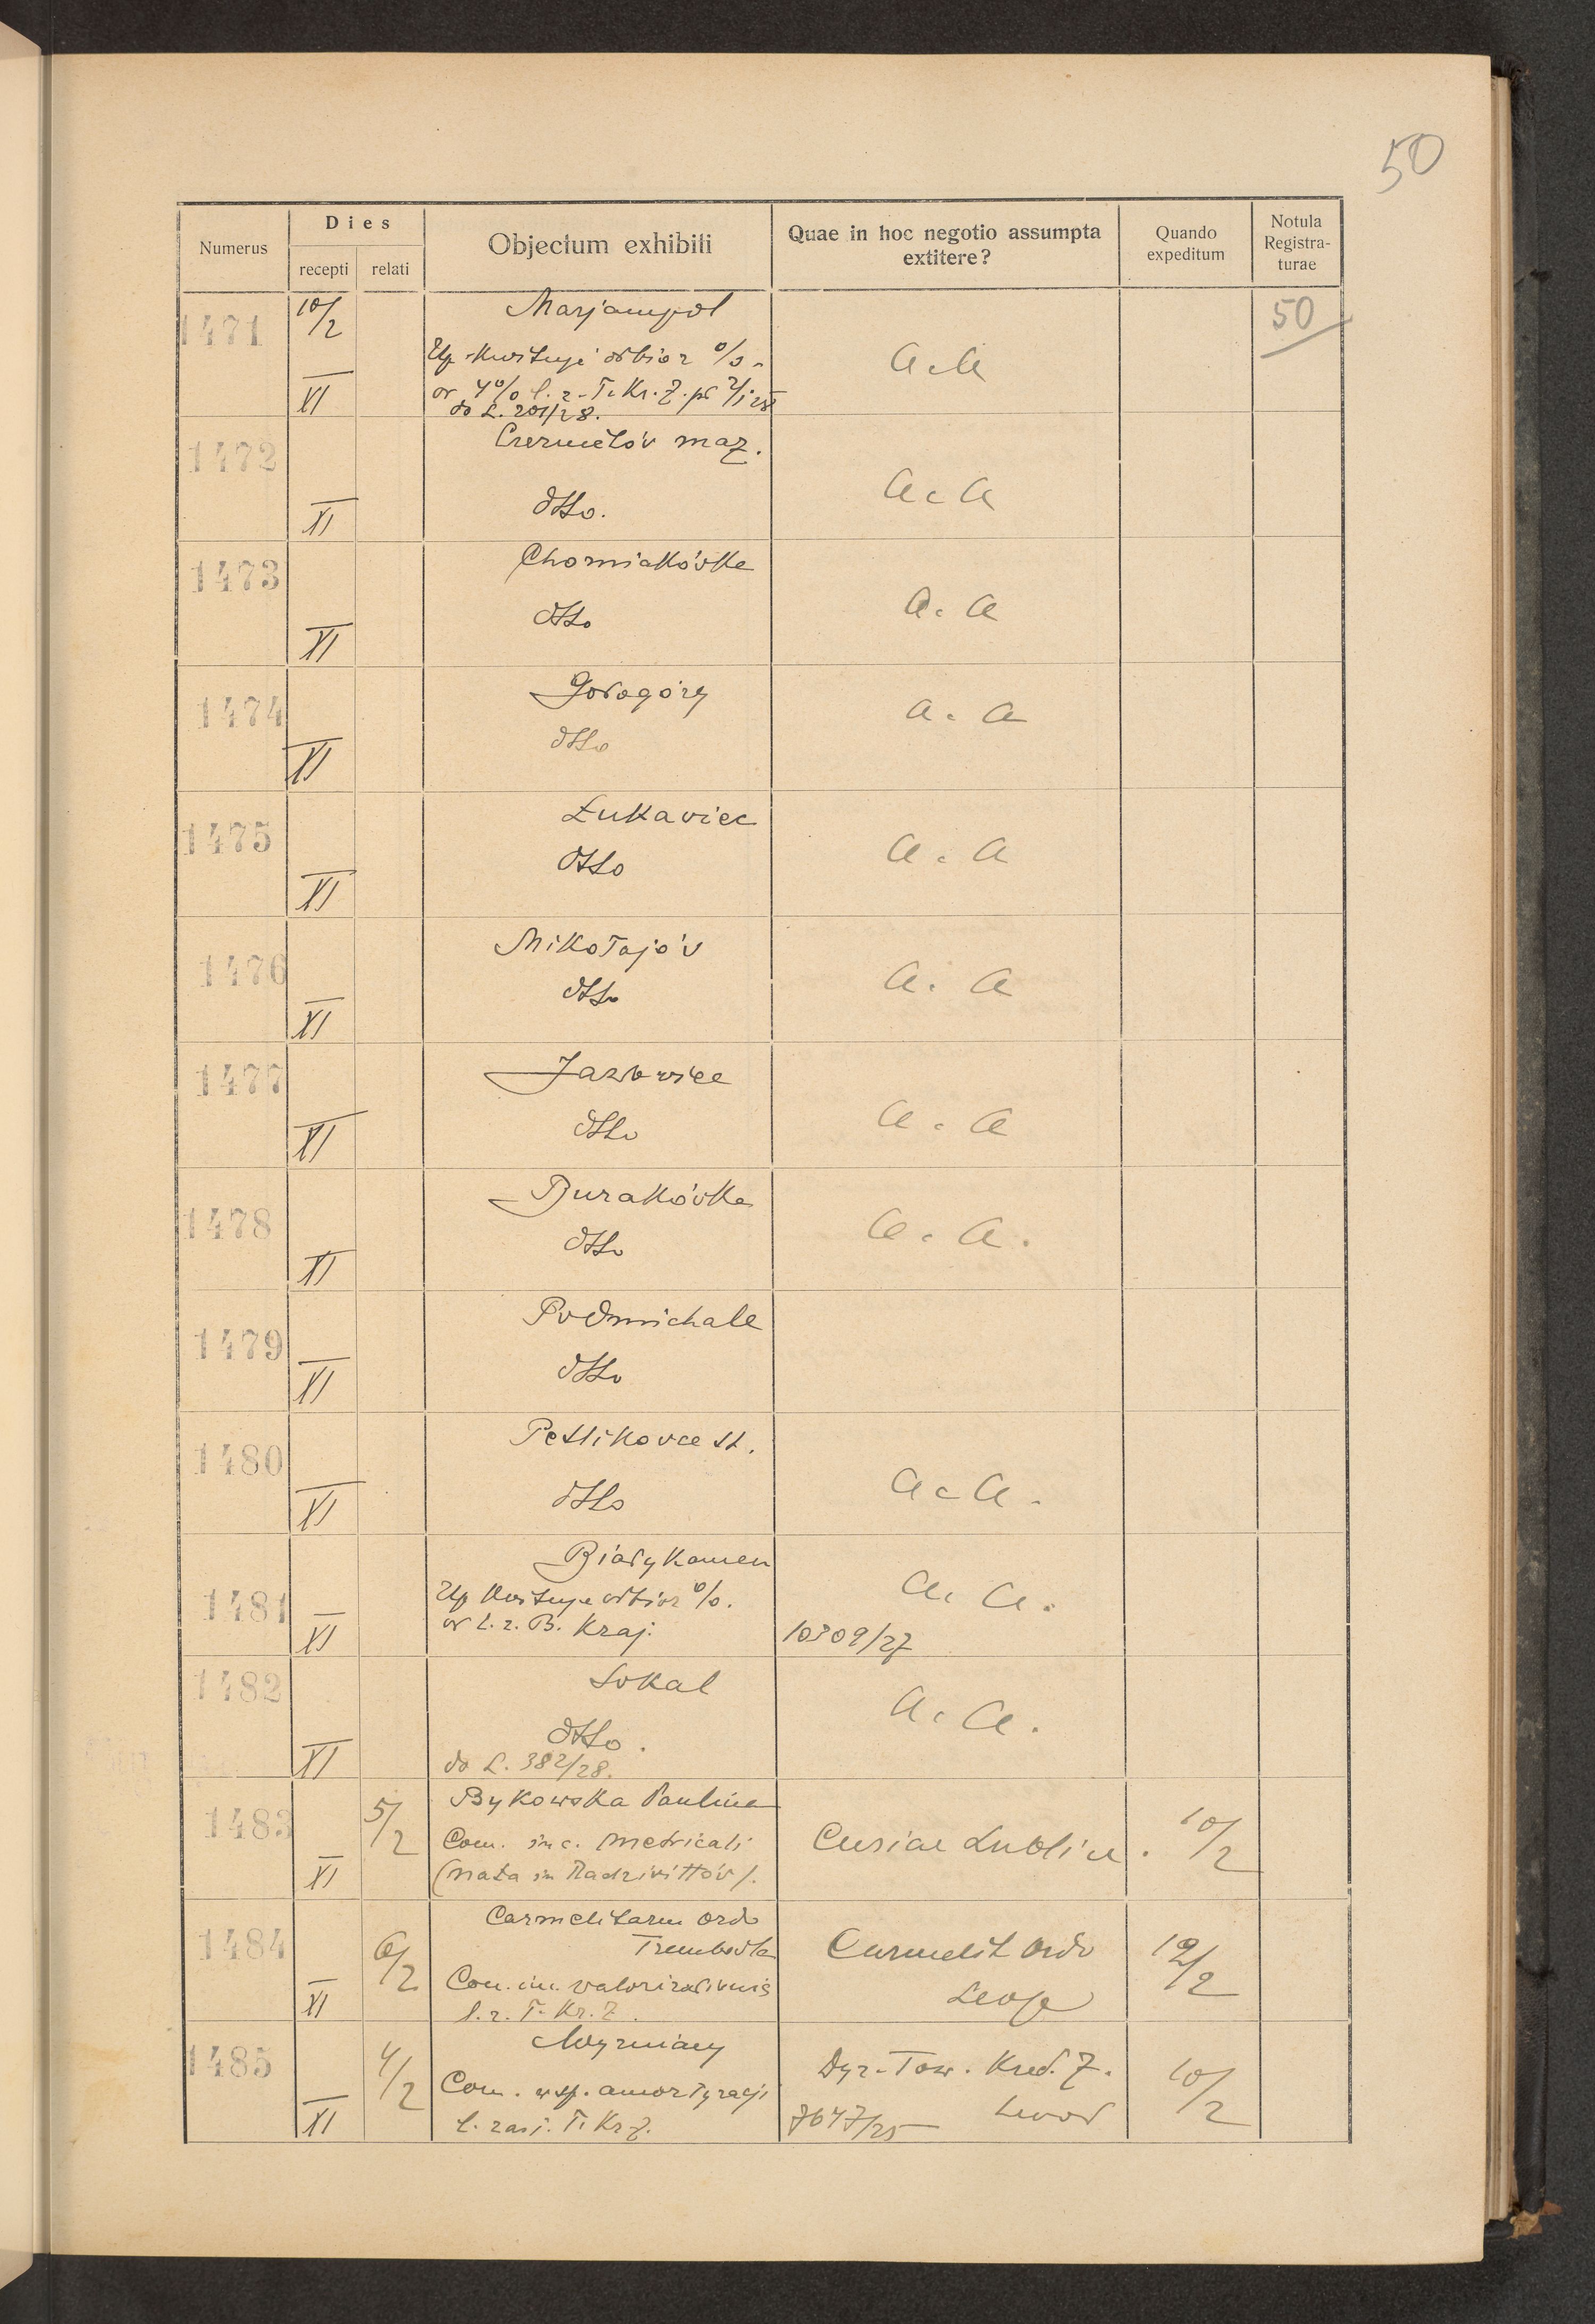 50
Numerus
Dies
recepti relati
Objectum exhibiti
Quae in hoc negotio assumpta
extitere?
Quando
expeditum
Notula
Registra-
turae
1471 10/2 XI
Marjampol
Up kwituje odbiór %
or 4% l. z. T. Kr. Z.
do L. 201/28.
a. a
50
1472 XI
maz.
dtto.
a. a
1473 XI
Chomiakówka
dtto
a. a
1474 XI
Gołogóry
dtto
a. a
1475 XI
Łukawiec
dtto
a. a
1476 XI
Mikołajów
dtto
a. a
1477 XI
Jazłowiec
dtto
a. a
1478 XI
Burakówka
dtto
a. a.
1479 XI
Podmichale
dtto
1480 XI
Petlikowce st.
dtto
a. a.
1481 XI
Biały Kamień
Up kwituje odbiór %.
or l. z. B. Kraj.
a. a.
10309/27
1482 XI
Sokal
dtto.
do L. 382/28.
a. a.
1483 XI 5/2
Bykowska Paulina
Com. in c. metricali
(nata in Radziwiłłów).
Curiae Lublin. 10/2
1484 XI 6/2
Carmelitarum Ordo
Trembowla
Com. in. valorizationis
l. z. T. Kr. Z.
Carmelit Ordo 12/2
Leop
1485 XI 4/2
Wyżniany
Com. w sp. amortyzacji
l. zast. T. Kr Z.
Dyr. Tow. Kred. Z. 10/2
7647/25 Lwów